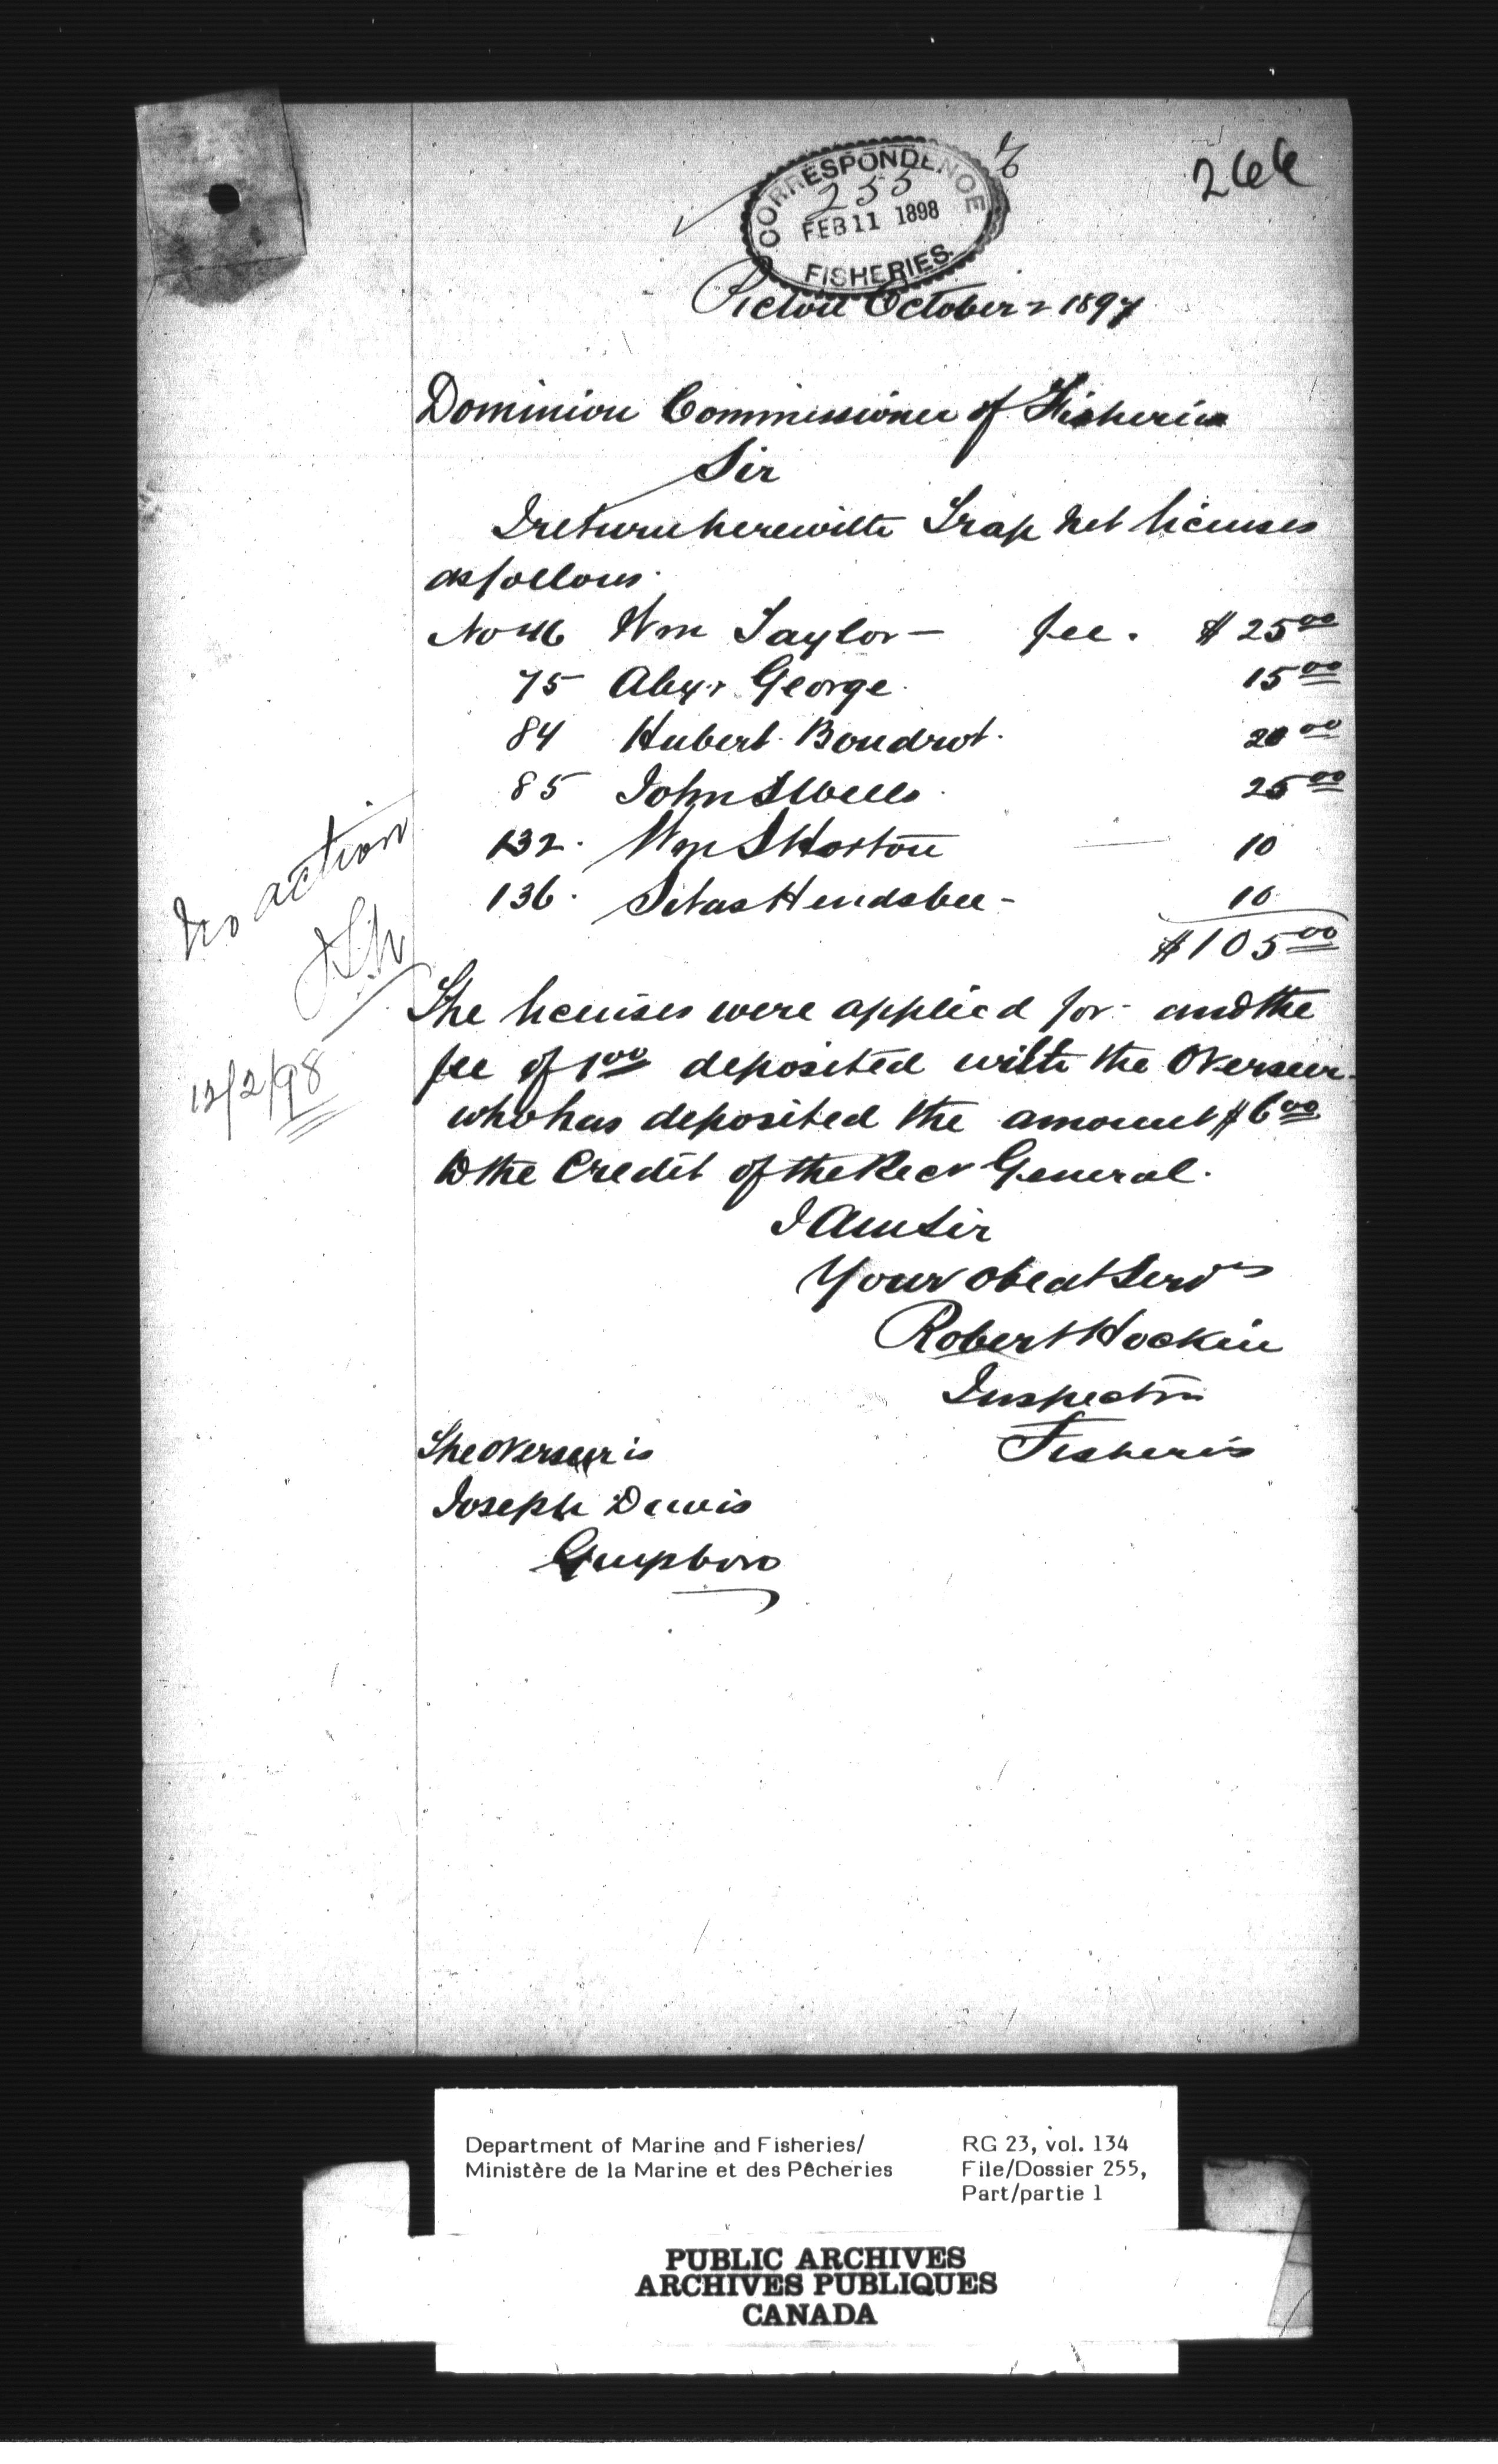 266
CORRESPONDENCE
255
FEB 11 1898
FISHERIES.
Pictou October 2 1897
Dominion Commissioner of Fisheries
Sir
I return herewith Trap Net licenses
as follows.
No 46 Wm Taylor — fee. $25 00
75 Alexr George. 15 00
84 Hubert Boudrot. 20 00
85 John S Wells. 25 00
132. Wm S Horton — 10
136. Silas Hendsbee - 10
$105 00
No action
12/2/98
The licenses were applied for - and the
fee of 1 00 deposited with the Overseer
who has deposited the amount $6 00
to the Credit of the Recr General.
I Am Sir
Your obedt Servt
Robert Hockin
Inspector
Fisheries
The Overseer is
Joseph Davis
Guysboro
Department of Marine and Fisheries/
Ministère de la Marine et des Pêcheries
RG 23, vol. 134
File/Dossier 255,
Part/partie 1
PUBLIC ARCHIVES
ARCHIVES PUBLIQUES
CANADA